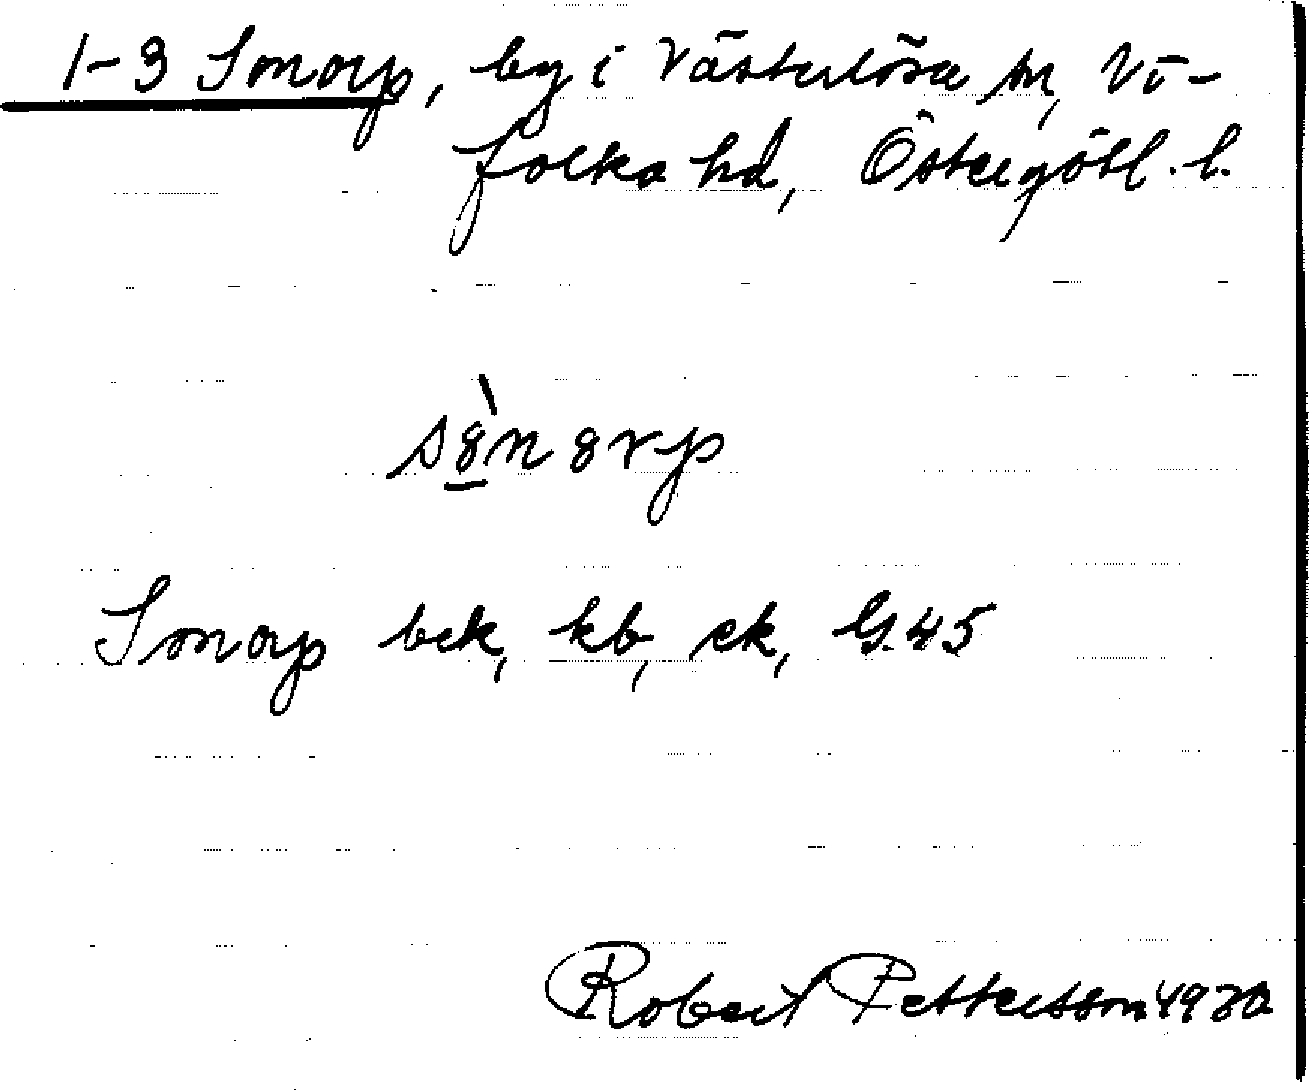 1-3 Smorp, by i Västerlösa sn, Vi-
folka hd, Östergötl. l.
sònorp
Smorp bek, kb, ek, G. 45
Robert Pettersson 1930